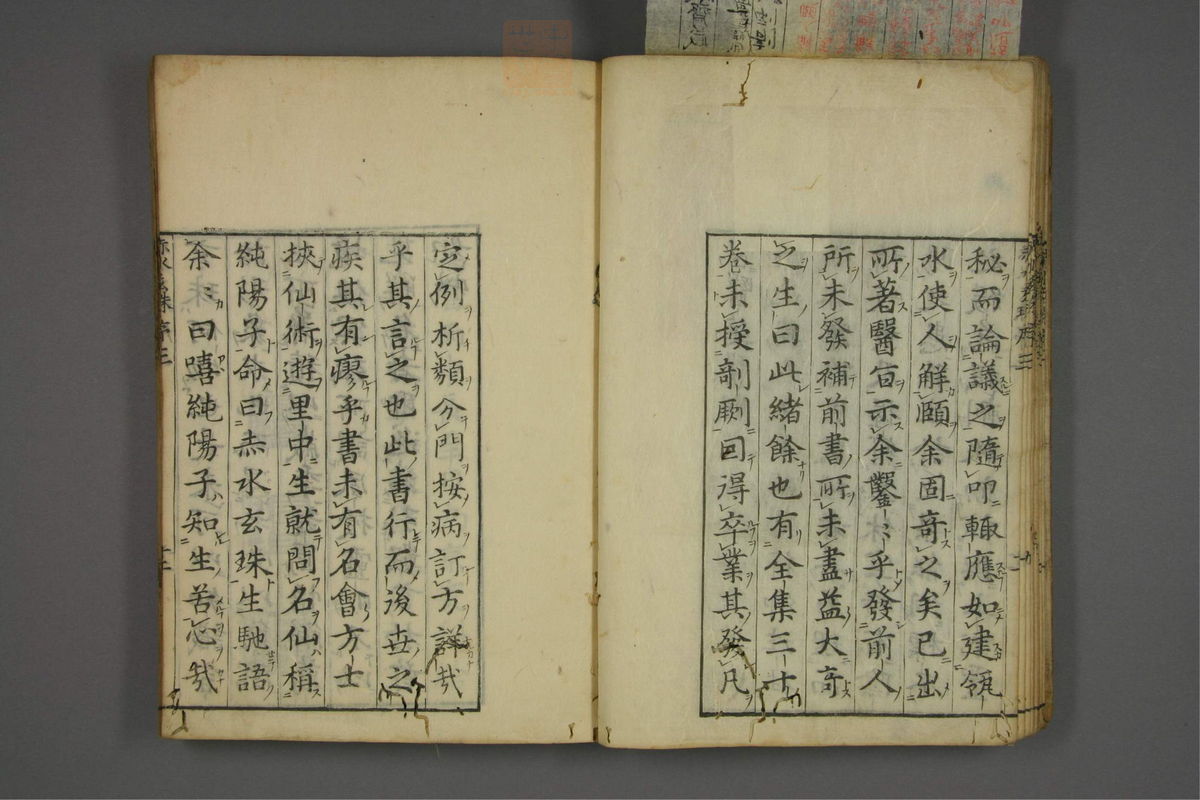 秘而論議之隨叩輙應如建瓴
水使人解頤余固竒之矣已出
所著醫㫖示余鑿〻乎發前人
所未發補前書所未盡益大竒
之生曰此緒餘也有全集三十
巻未授剞劂囙得卒業其發凡
定例析類分門按病訂方詳哉
乎其言之也此書行而後世之
疾其有瘳乎書未有名會方士
挾仙術遊里中生就問名仙稱
純陽子命曰赤水玄珠生馳語
余〻曰嘻純陽子知生苦心哉